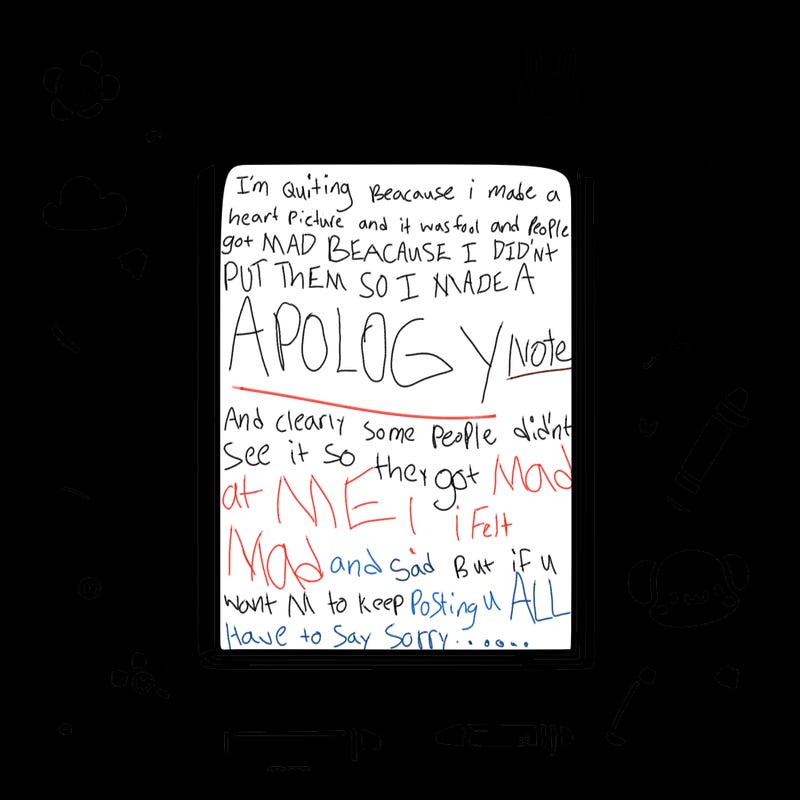 I'm Quiting Beacause i made a
heart Picture and it was fool and People
got MAD BEACAUSE I DIDN't
PUT THEM SO I MADE A
APOLOGY Note
And clearly some people didn't
see it so they got Mad
at ME! i Felt
Mad and sad But if u
want M to keep Posting u ALL
Have to Say Sorry........